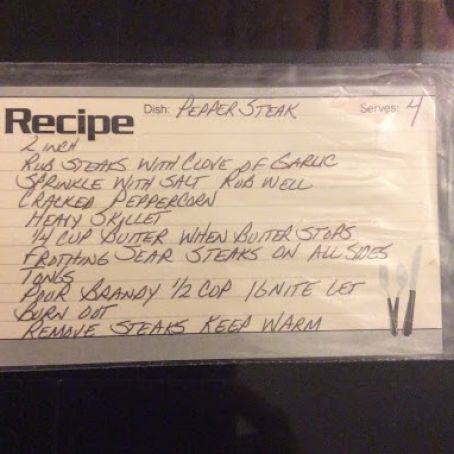 Recipe Dish: PEPPER STEAK Serves: 4
2 INCH
RUB STEAKS WITH CLOVE OF GARLIC
SPRINKLE WITH SALT RUB WELL
CRACKED PEPPERCORN
HEAVY SKILLET
1/4 CUP BUTTER WHEN BUTTER STOPS
FROTHING SEAR STEAKS ON ALL SIDES
TONGS
POUR BRANDY 1/2 CUP IGNITE LET
BURN OUT
REMOVE STEAKS KEEP WARM